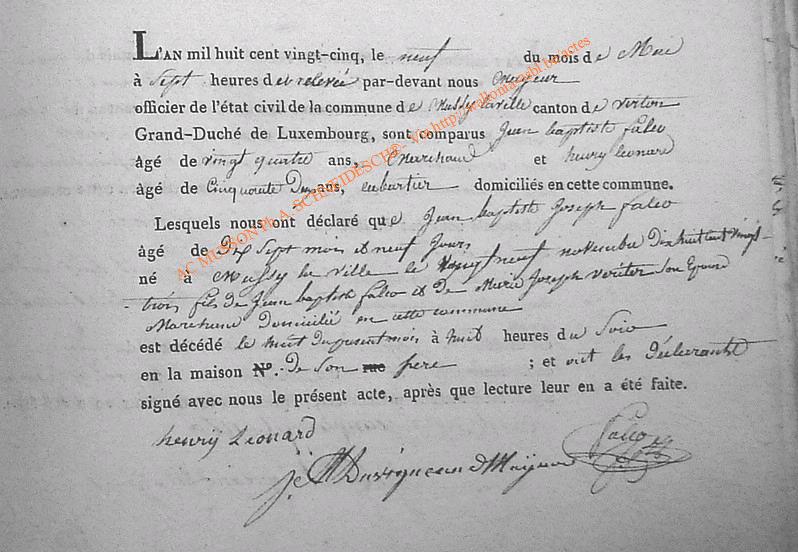 L'AN mil huit cent vingt-cinq, le neuf du mois de Mai
à sept heures de relevée par-devant nous Mayeur
officier de l'état civil de la commune de Mussy la ville canton de virton
Grand-Duché de Luxembourg, sont comparus Jean baptiste falco
âgé de vingt quatre ans, Marchand et henry leonard
âgé de Cinquante ans, cabartier domiciliés en cette commune.
Lesquels nous ont déclaré que Jean baptiste Joseph falco
âgé de Dix Sept mois et neuf Jours
né à Mussy la ville le vingt neuf novembre Dix huit cent vingt
trois fils de Jean baptiste falco et de Marie Joseph son Epouse
Marchand Domicilié en cette commune
est décédé le huit du present mois à huit heures du Soir
en la maison N.º de son rue pere ; et ont les Déclarants
signé avec nous le présent acte, après que lecture leur en a été faite.
henrij Leonard
falco
Mayeur
AC MUSSON Ph A. SCHNEIDESCH